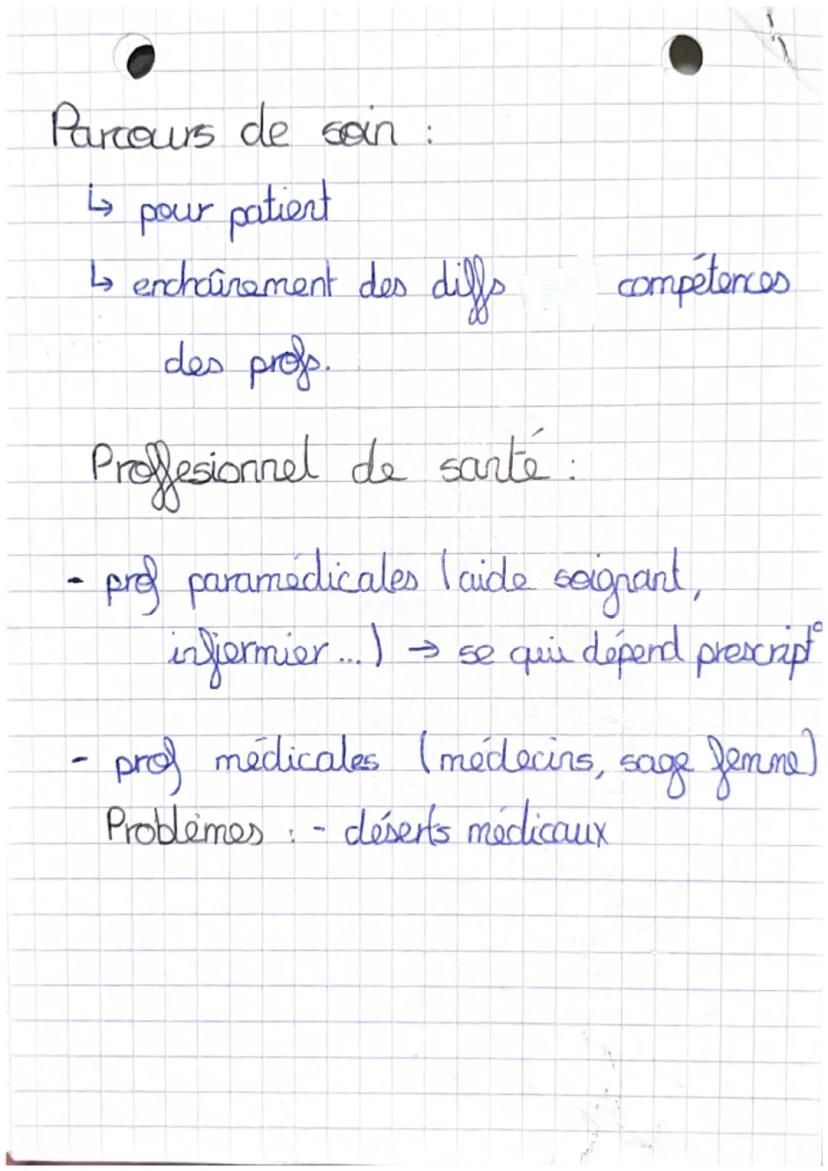 Parcours de soin :
↳ pour patient
↳ enchaînement des diffs compétences
des profs.
Proffesionnel de santé :
- prof paramédicales (aide soignant,
infiermier...) → se qui dépend prescript°
- prof médicales (médecins, sage femme)
Problèmes : - déserts médicaux